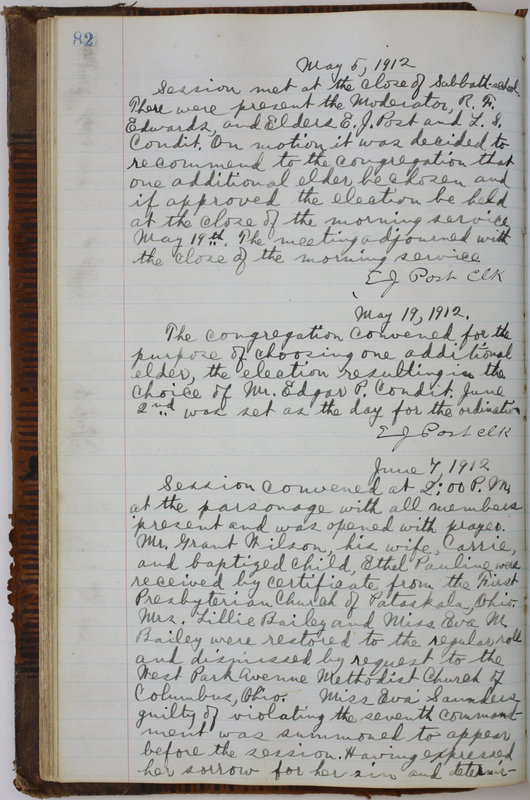 82
May 5, 1912
Session met at the close of Sabbath-school.
There were present the Moderator, R. W.
Edwards, and Elders E. J. Post and L. S.
Condit. On motion it was decided to
recommend to the congregation that
one additional elder be chosen and
if approved the election be held
at the close of the morning service
May 19th. The meeting adjourned with
the close of the morning service
E J Post Clk
May 19, 1912.
The congregation convened for the
purpose of choosing one additional
elder, the election resulting in the
choice of Mr. Edgar P. Condit. June
2nd was set as the day for the ordination
E J Post clk
June 7, 1912
Session convened at 2:00 P.M.
at the parsonage with all members
present and was opened with prayer.
Mr. Grant Wilson, his wife, Carrie,
and baptized child, Ethel Pauline were
received by certificate from the First
Presbyterian Church of Pataskala, Ohio.
Mrs. Lillie Bailey and Miss Eva M.
Bailey were restored to the regular roll
and dismissed by request to the
West Park Avenue Methodist Church of
Columbus, Ohio. Miss Eva Saunders
guilty of violating the seventh command-
ment was summoned to appear
before the session. Having expressed
her sorrow for her sin and determi-